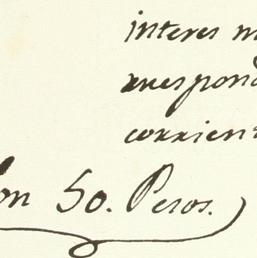 interes m
rrespond
corrient
on 50. Pesos.